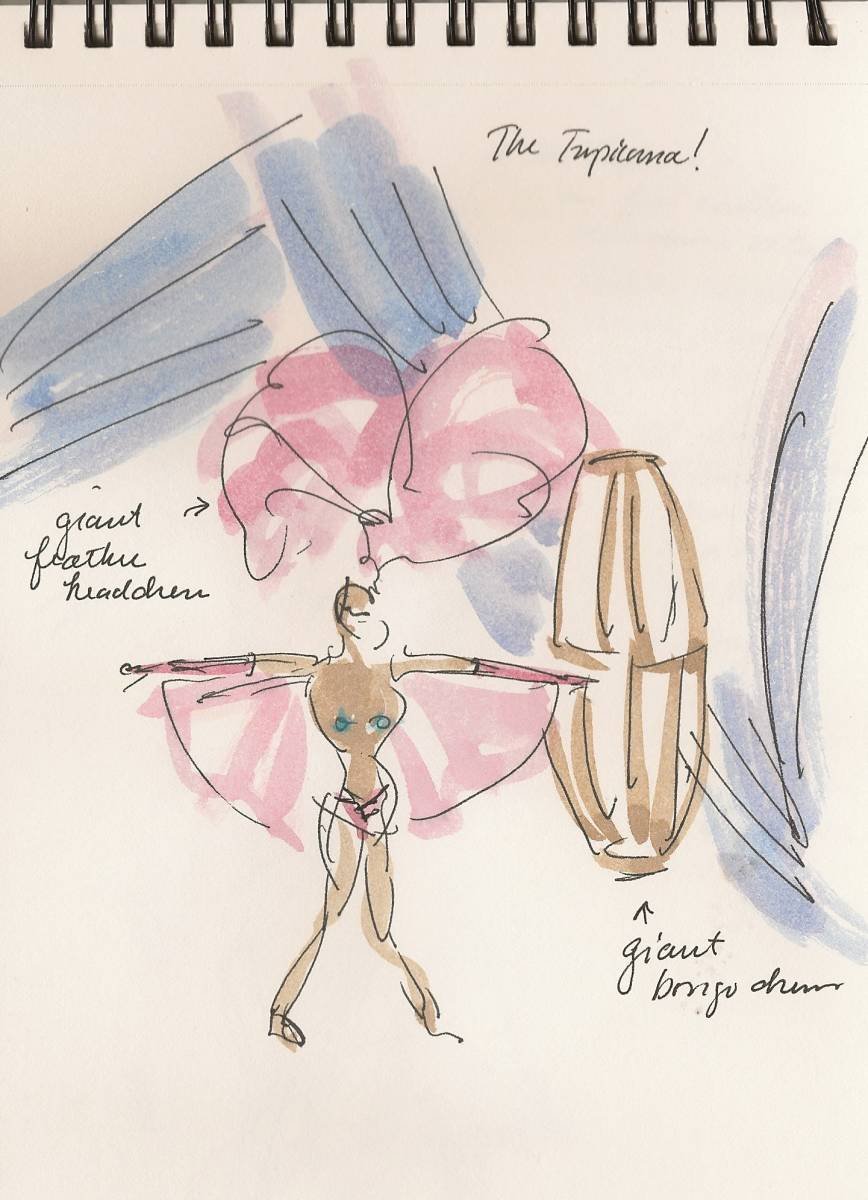 The Tropicana!
giant
feather
headdress
giant
bongo drum